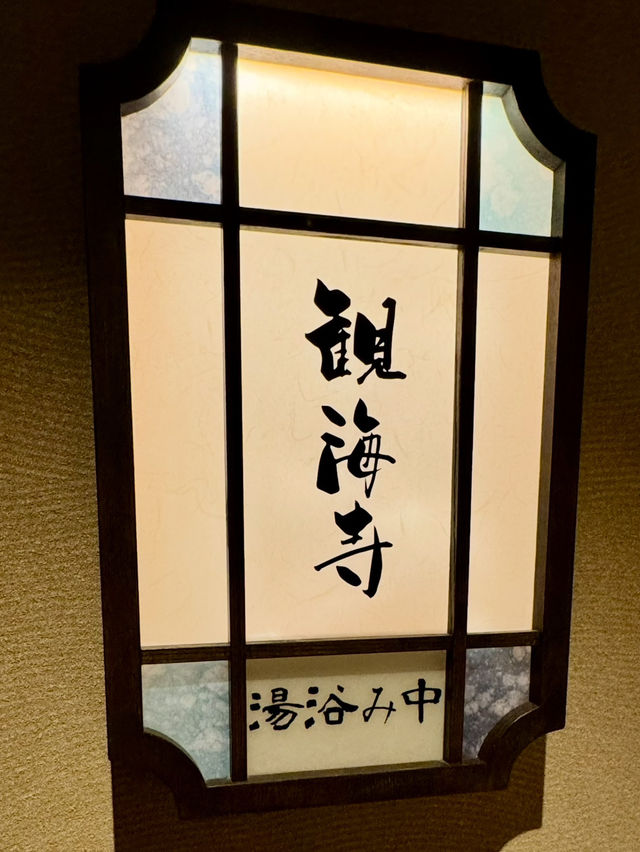 観海寺
湯浴み中